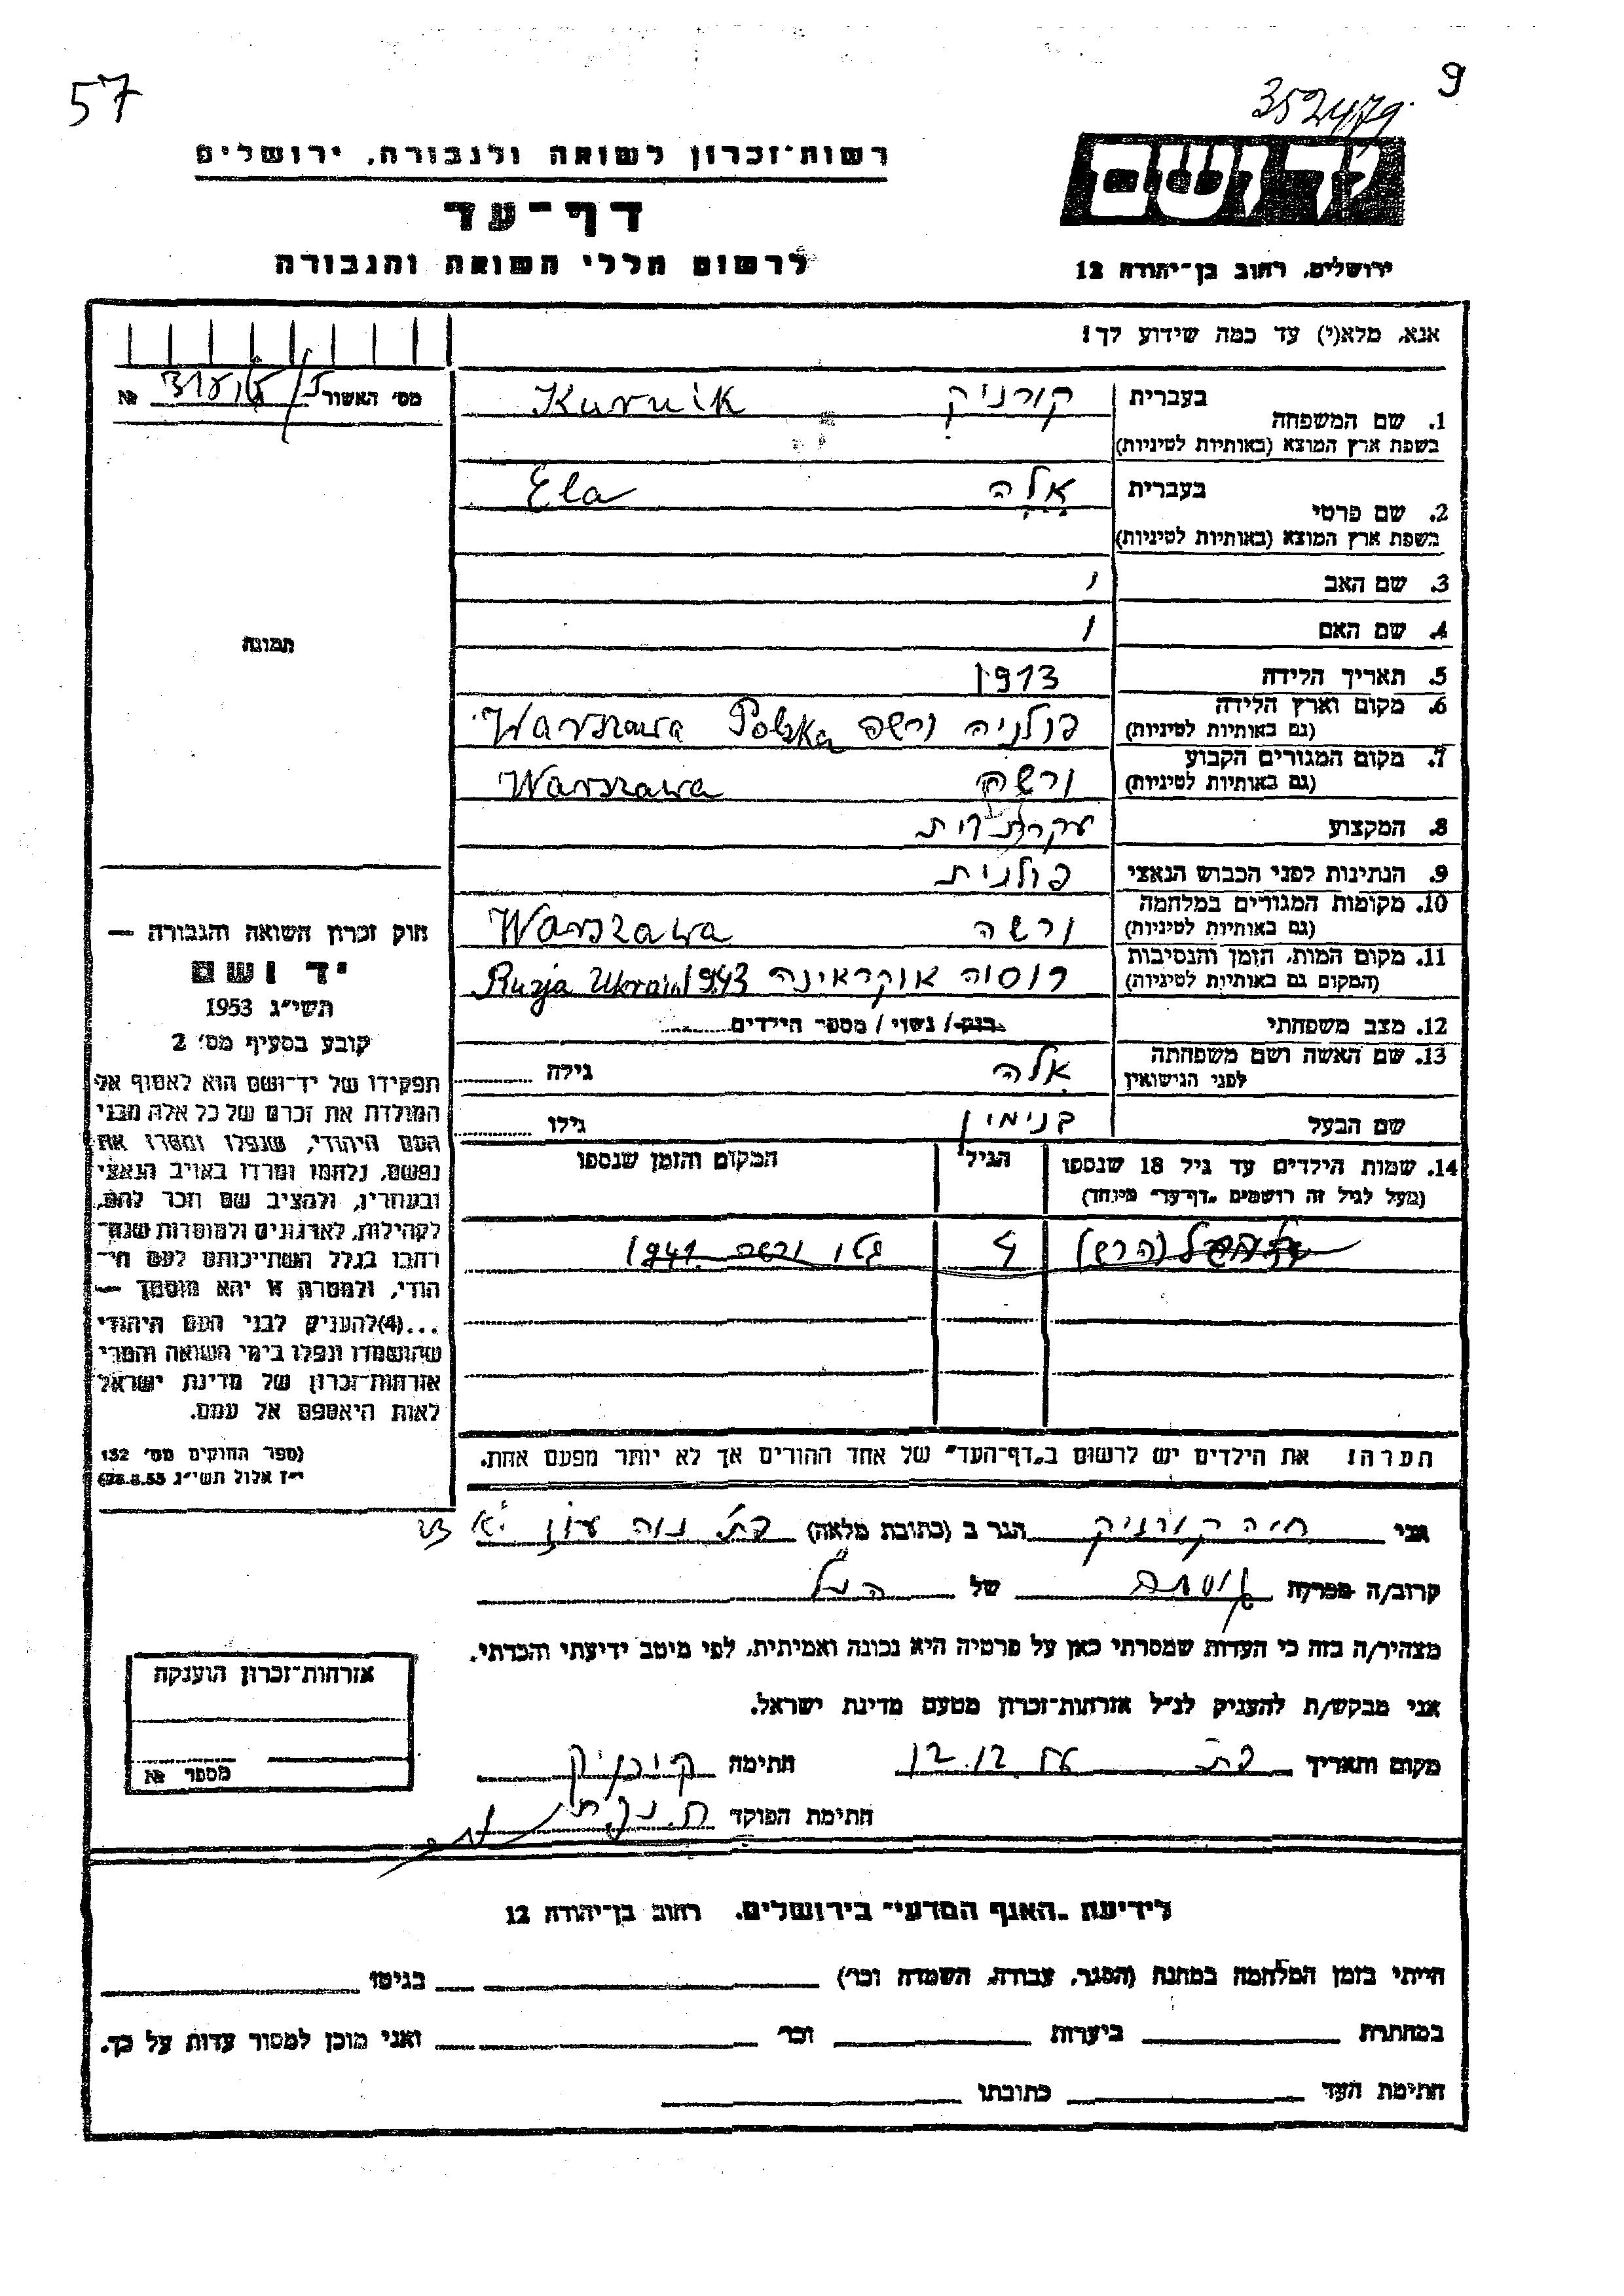 57
9
352479
רשות־זכרון לשואה ולגבורה, ירושלים
יד ושם
דף־עד
לרשום חללי השואה והגבורה
ירושלים, רחוב בן־יהודה 12
אנא, מלא(י) עד כמה שידוע לך!
מס׳ האשור №
בעברית קורניק Kurnik
1. שם המשפחה
בשפת ארץ המוצא (באותיות לטיניות)
בעברית אלה Ela
2. שם פרטי
בשפת ארץ המוצא (באותיות לטיניות)
3. שם האב
4. שם האם
תמונה
5. תאריך הלידה 1913
6. מקום וארץ הלידה פולניה ורשה Warszawa Polska
(גם באותיות לטיניות)
7. מקום המגורים הקבוע ורשה Warszawa
(גם באותיות לטיניות)
8. המקצוע עקרת בית
9. הנתינות לפני הכבוש הנאצי פולנית
10. מקומות המגורים במלחמה ורשה Warszawa
(גם באותיות לטיניות)
11. מקום המות, הזמן והנסיבות רוסיה אוקראינה 1943 Rusja Ukrain
(המקום גם באותיות לטיניות)
12. מצב משפחתי רווק / נשוי / מספר הילדים
13. שם האשה ושם משפחתה אלה גילה
לפני הנישואין
שם הבעל בנימין גילו
14. שמות הילדים עד גיל 18 שנספו הגיל המקום והזמן שנספו
(מעל לגיל זה רושמים „דף־עד״ מיוחד)
(הרש) 4 גטו ורשה 1941
חוק זכרון השואה והגבורה —
יד ושם
תשי״ג 1953
קובע בסעיף מס׳ 2
תפקידו של יד־ושם הוא לאסוף אל
המולדת את זכרם של כל אלה מבני
העם היהודי, שנפלו ומסרו את
נפשם, נלחמו ומרדו באויב הנאצי
ובעוזריו, ולהציב שם וזכר להם,
לקהילות, לארגונים ולמוסדות שנח־
רבו בגלל השתייכותם לעם הי־
הודי, ולמטרה זו יהא מוסמך —
...(4)להעניק לבני העם היהודי
שהושמדו ונפלו בימי השואה והמרי
אזרחות־זכרון של מדינת ישראל
לאות היאספם אל עמם.
(ספר החוקים מס׳ 132
י״ז אלול תשי״ג 28.8.53)
הערה: את הילדים יש לרשום ב„דף־העד״ של אחד ההורים אך לא יותר מפעם אחת.
אני חיה קורניק הגר ב (כתובת מלאה)
קרוב/ה מכר/ה גיסתה של הנ״ל
מצהיר/ה בזה כי העדות שמסרתי כאן על פרטיה היא נכונה ואמיתית, לפי מיטב ידיעתי והכרתי.
אני מבקש/ת להעניק לנ״ל אזרחות־זכרון מטעם מדינת ישראל.
מקום ותאריך 12.12 חתימה קורניק
חתימת הפוקד
אזרחות־זכרון הוענקה
מספר №
לידיעת „האגף המדעי״ בירושלים, רחוב בן־יהודה 12
הייתי בזמן המלחמה במחנה (הסגר, עבודה, השמדה וכר׳) בגיטו
במחתרת ביערות וכר׳ ואני מוכן למסור עדות על כך.
חתימת העד כתובתו